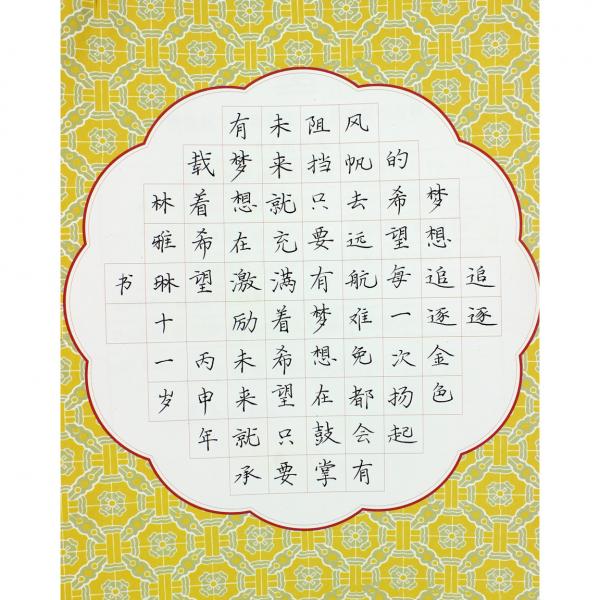 追逐
梦想追逐金色
的希望每一次扬起
风帆去远航难免都会有
阻挡只要有梦想在鼓掌
未来就充满着希望只要
有梦想在激励未来就承
载着希望 丙申年
林雅琳十一岁
书